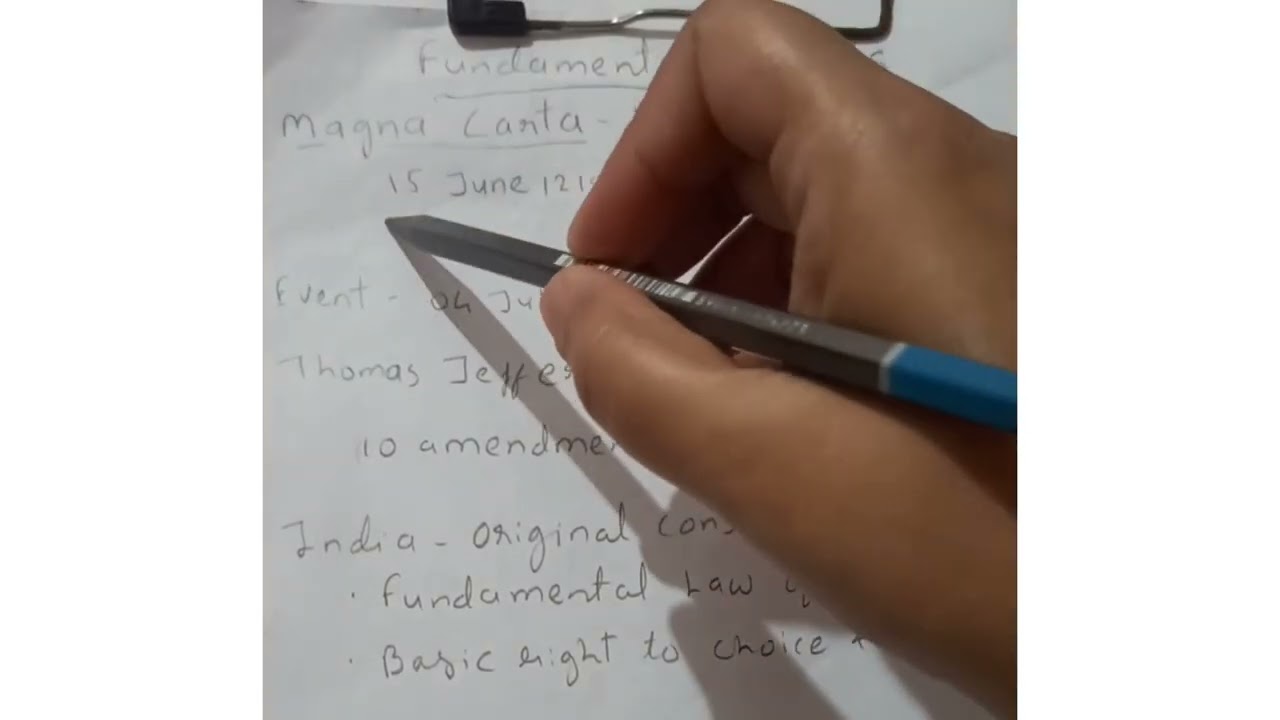 Fundament
Magna Carta -
15 June 121
Event - 04 Ju
Thomas Jeffe
10 amendme
India - Original Cons
· Fundamental Law of
· Basic right to choice